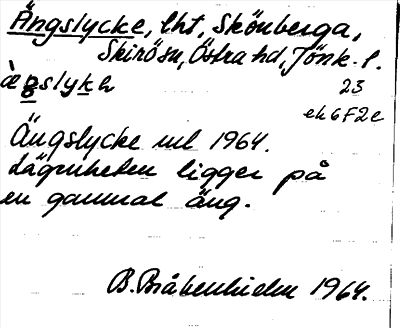 Ängslycke, lht, Skönberga,
Skirö sn, Östra hd, Jönk. l.
23
ek 6F2e
Ängslycke uel 1964.
Lägenheten ligger på
en gammal äng.
B. Bråkenhielm 1964.